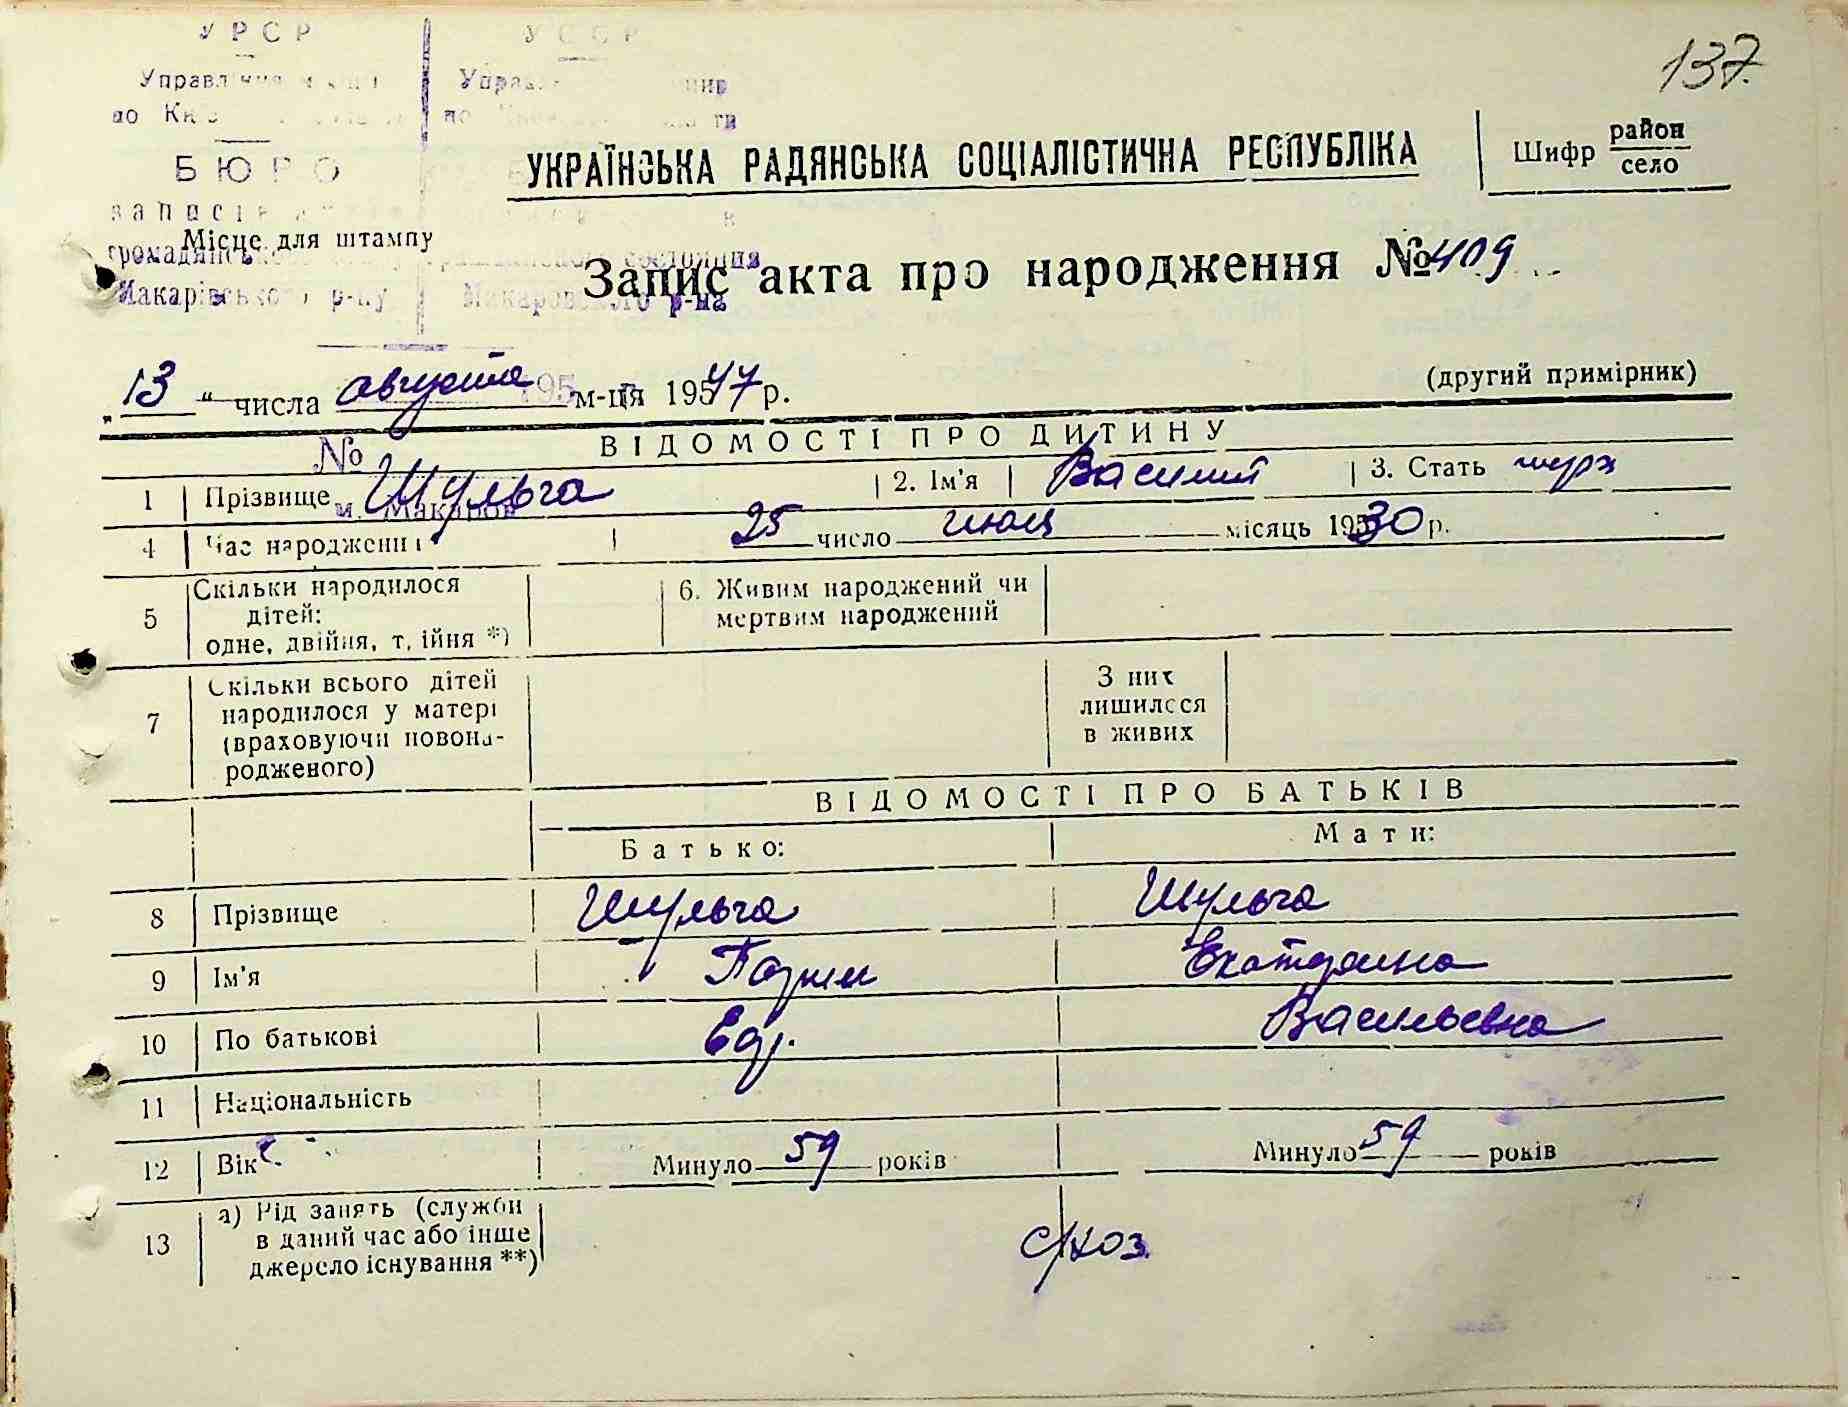 137.
УРСР УССР
Управління
по
БЮРО
Місце для штампу
Макарівського р-ну Макаровского р-на
УКРАЇНСЬКА РАДЯНСЬКА СОЦІАЛІСТИЧНА РЕСПУБЛІКА
Шифр район
село
Запис акта про народження № 409
„13“ числа августа м-ця 1947 р.
(другий примірник)
№
м. Макаров
ВІДОМОСТІ ПРО ДИТИНУ
1 Прізвище Шульга 2. Ім'я Василий 3. Стать муж
4 Час народження 25 число июля місяць 1930 р.
5 Скільки народилося дітей: одне, двійня, трійня *)
6. Живим народжений чи мертвим народжений
7 Скільки всього дітей народилося у матері (враховуючи новона-родженого)
З них лишилося в живих
ВІДОМОСТІ ПРО БАТЬКІВ
Батько: Мати:
8 Прізвище Шульга Шульга
9 Ім'я Екатерина
10 По батькові Васильевна
11 Національність
12 Вік Минуло 59 років Минуло 59 років
13 а) Рід занять (служби в даний час або інше джерело існування **) с/хоз.